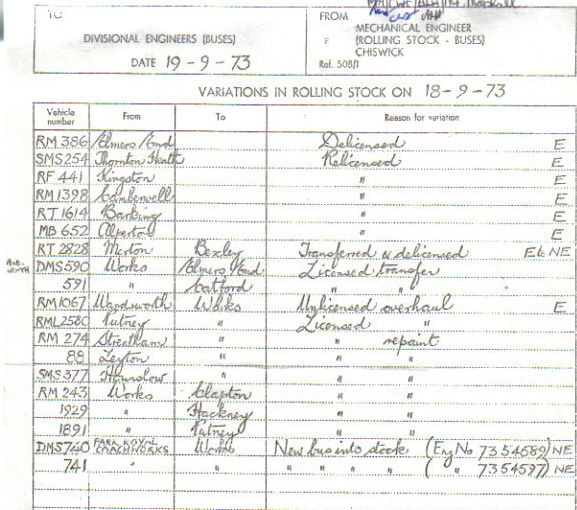 TO
DIVISIONAL ENGINEERS (BUSES)
DATE 19-9-73
FROM
MECHANICAL ENGINEER
(ROLLING STOCK - BUSES)
CHISWICK
Ref. 508/1
VARIATIONS IN ROLLING STOCK ON 18-9-73
Vehicle number From To Reason for variation
RM 386 Elmers End Delicensed E
SMS 254 Thornton Heath Relicensed E
RF 441 Kingston " E
RM 1398 Camberwell " E
RT 1614 Barking " E
MB 652 Alperton " E
RT 2828 Merton Bexley Transferred & delicensed E & NE
DMS 590 Works Elmers End Licensed transfer
591 " Catford " "
RM 1067 Wandsworth Works Unlicensed overhaul E
RML 2580 Putney " Licensed "
RM 274 Streatham " " repaint
88 Leyton " " "
SMS 377 Hounslow " " "
RM 243 Works Clapton " "
1929 " Hackney " "
1891 " Putney " "
DMS 740 PARK ROYAL COACHWORKS Works New bus into stock (Eng No 7354689) NE
741 " " " " " " ( " 7354597) NE